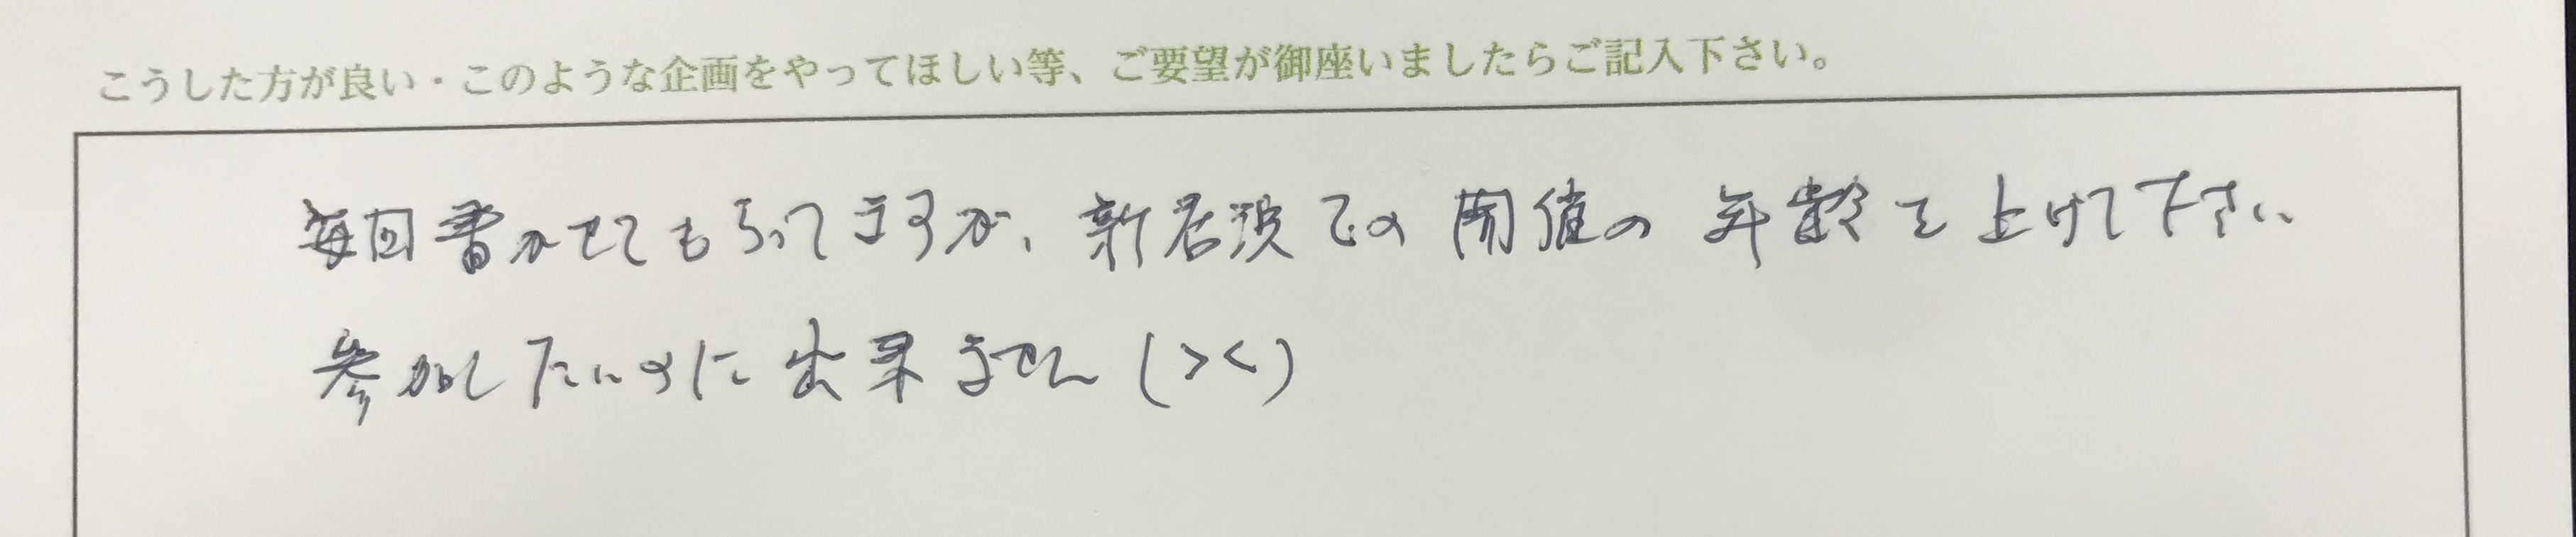 こうした方が良い・このような企画をやってほしい等、ご要望が御座いましたらご記入下さい。
毎回書かせてもらってますが、新居浜での開催の年齢を上げて下さい
参加したいのに出来ません(><)